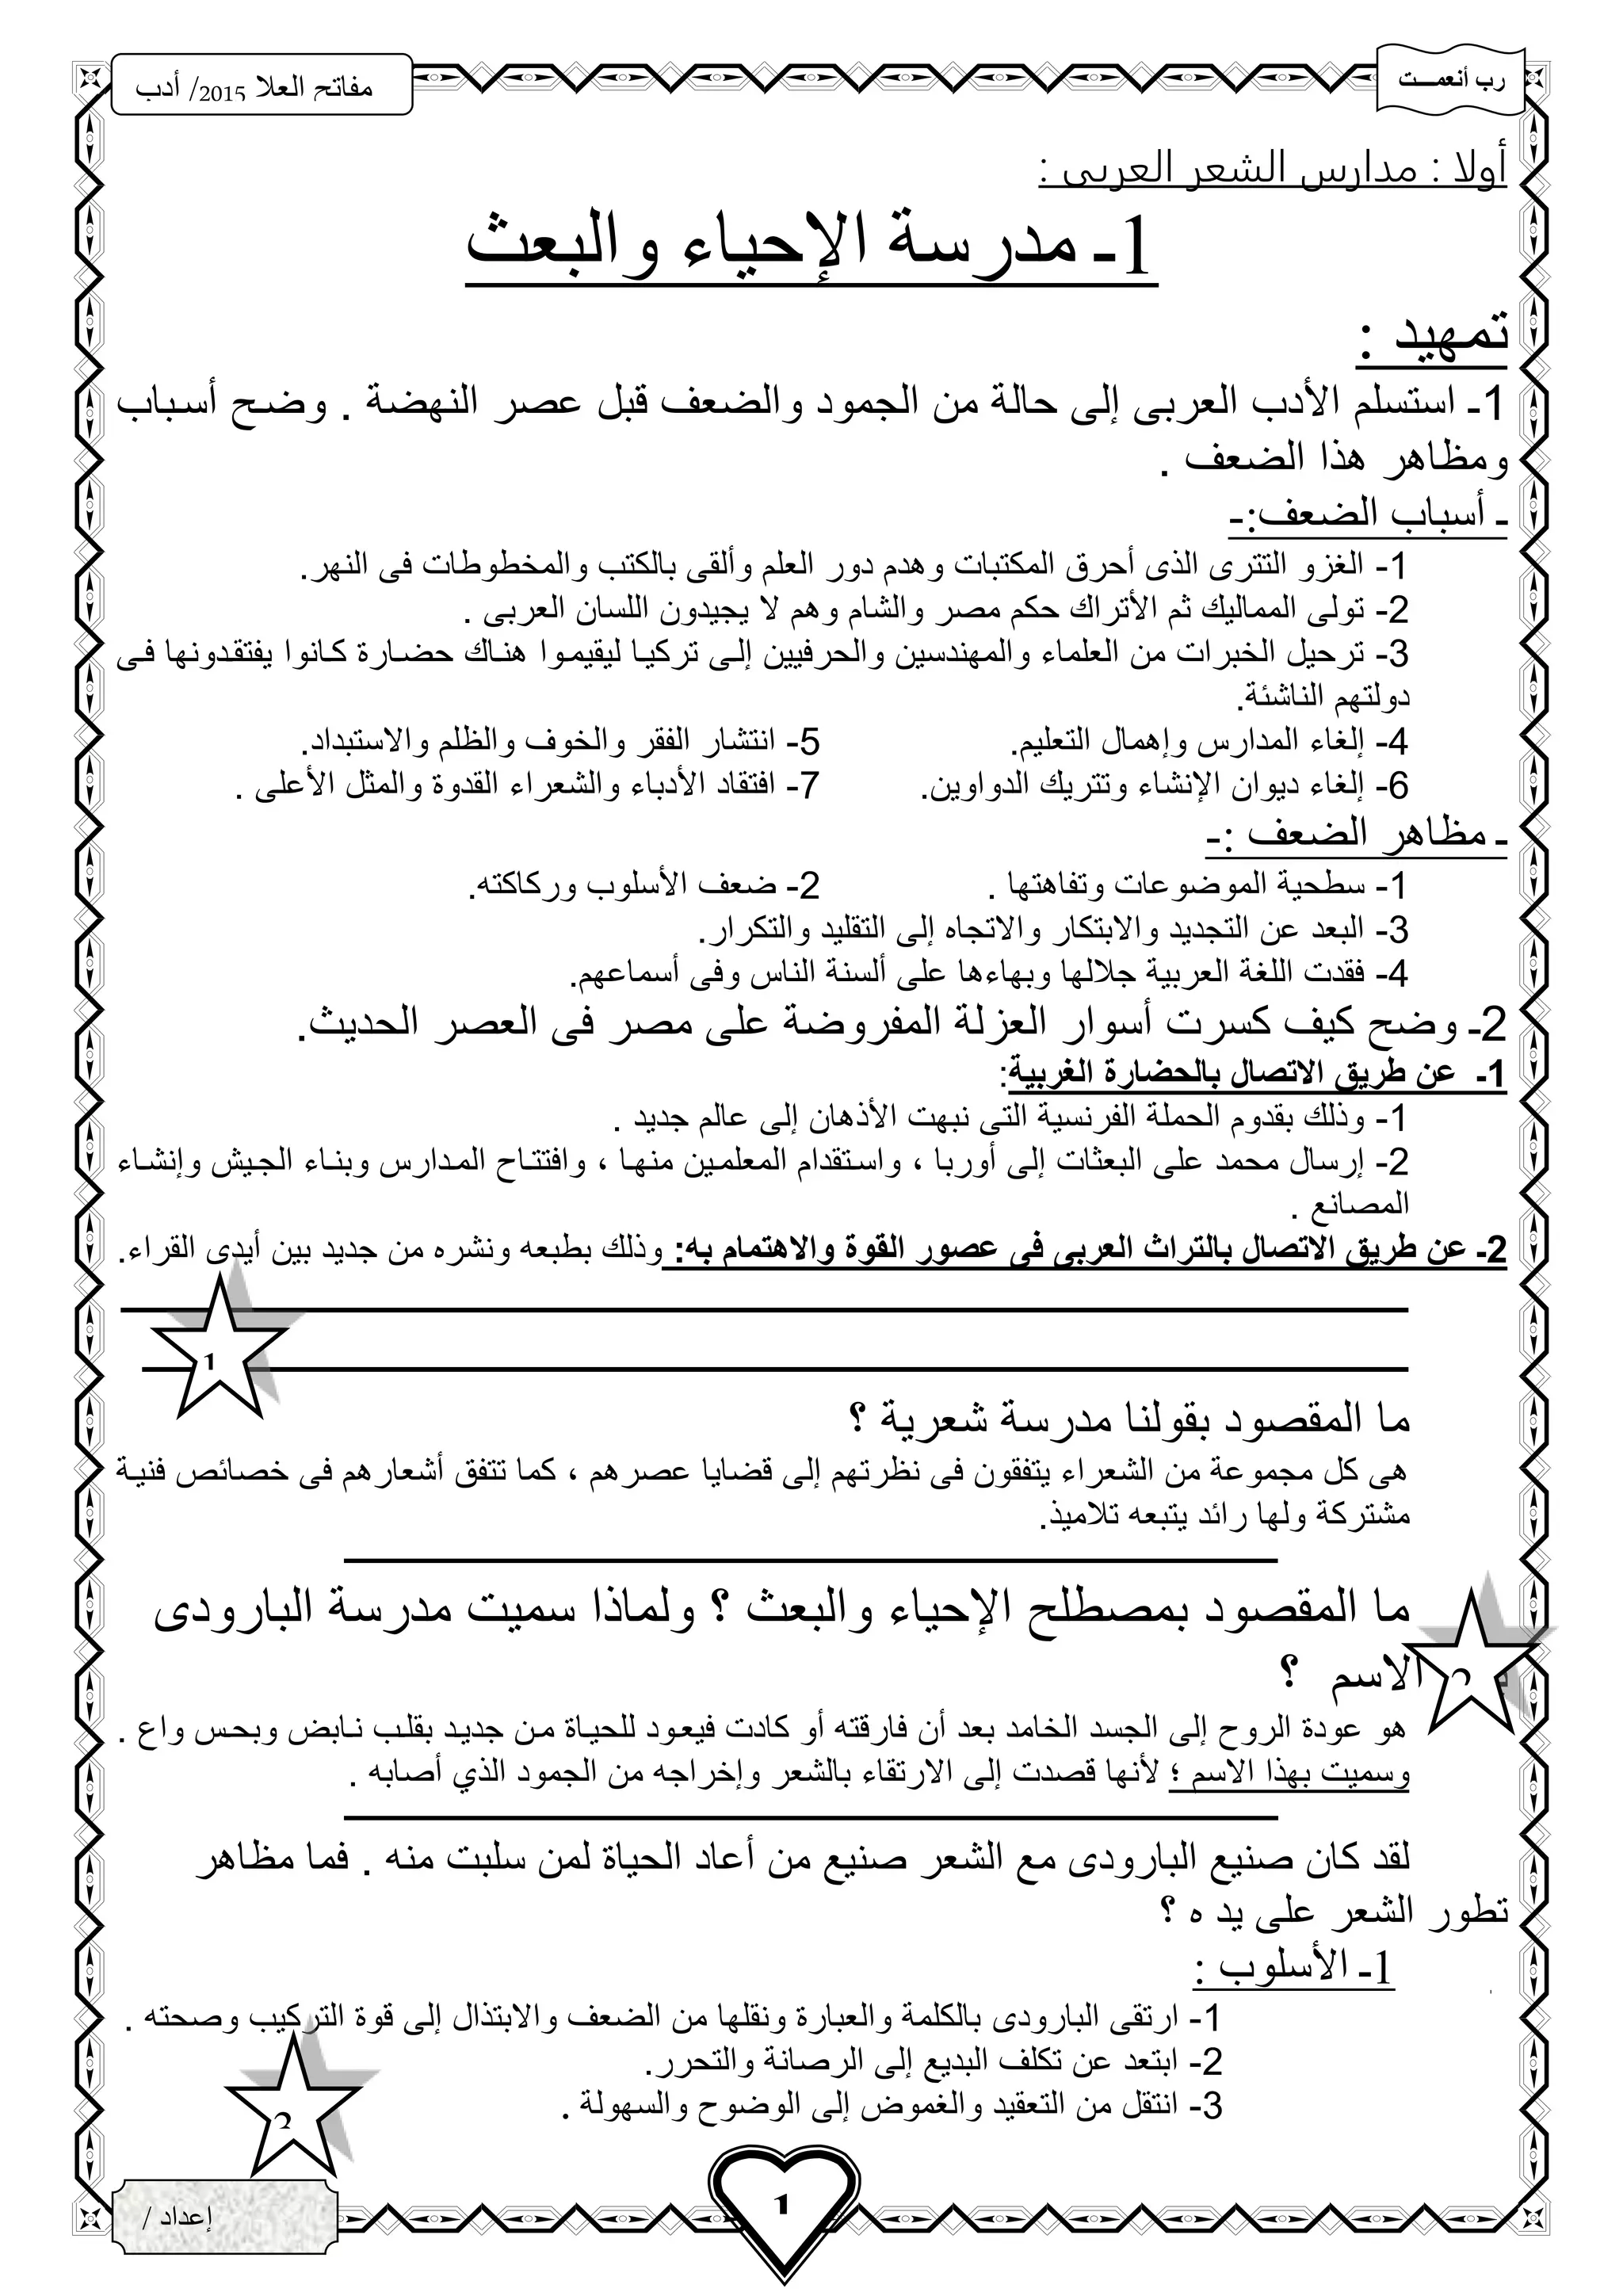 رب أنعمـــت
مفاتح العلا 2015/ أدب
أولا : مدارس الشعر العربى :
1- مدرسة الإحياء والبعث
تمهيد :
1- استسلم الأدب العربى إلى حالة من الجمود والضعف قبل عصر النهضة . وضح أسباب
ومظاهر هذا الضعف .
- أسباب الضعف:-
1- الغزو التترى الذى أحرق المكتبات وهدم دور العلم وألقى بالكتب والمخطوطات فى النهر.
2- تولى المماليك ثم الأتراك حكم مصر والشام وهم لا يجيدون اللسان العربى .
3- ترحيل الخبرات من العلماء والمهندسين والحرفيين إلى تركيا ليقيموا هناك حضارة كانوا يفتقدونها فى
دولتهم الناشئة.
4- إلغاء المدارس وإهمال التعليم. 5- انتشار الفقر والخوف والظلم والاستبداد.
6- إلغاء ديوان الإنشاء وتتريك الدواوين. 7- افتقاد الأدباء والشعراء القدوة والمثل الأعلى .
- مظاهر الضعف :-
1- سطحية الموضوعات وتفاهتها . 2- ضعف الأسلوب وركاكته.
3- البعد عن التجديد والابتكار والاتجاه إلى التقليد والتكرار.
4- فقدت اللغة العربية جلالها وبهاءها على ألسنة الناس وفى أسماعهم.
2- وضح كيف كسرت أسوار العزلة المفروضة على مصر فى العصر الحديث.
1- عن طريق الاتصال بالحضارة الغربية:
1- وذلك بقدوم الحملة الفرنسية التى نبهت الأذهان إلى عالم جديد .
2- إرسال محمد على البعثات إلى أوربا ، واستقدام المعلمين منها ، وافتتاح المدارس وبناء الجيش وإنشاء
المصانع .
2- عن طريق الاتصال بالتراث العربى فى عصور القوة والاهتمام به: وذلك بطبعه ونشره من جديد بين أيدى القراء.
1
ما المقصود بقولنا مدرسة شعرية ؟
هى كل مجموعة من الشعراء يتفقون فى نظرتهم إلى قضايا عصرهم ، كما تتفق أشعارهم فى خصائص فنية
مشتركة ولها رائد يتبعه تلاميذ.
ما المقصود بمصطلح الإحياء والبعث ؟ ولماذا سميت مدرسة البارودى
الاسم ؟
هو عودة الروح إلى الجسد الخامد بعد أن فارقته أو كادت فيعود للحياة من جديد بقلب نابض وبحس واع .
وسميت بهذا الاسم ؛ لأنها قصدت إلى الارتقاء بالشعر وإخراجه من الجمود الذي أصابه .
لقد كان صنيع البارودى مع الشعر صنيع من أعاد الحياة لمن سلبت منه . فما مظاهر
تطور الشعر على يد ه ؟
1- الأسلوب :
1- ارتقى البارودى بالكلمة والعبارة ونقلها من الضعف والابتذال إلى قوة التركيب وصحته .
2- ابتعد عن تكلف البديع إلى الرصانة والتحرر.
3- انتقل من التعقيد والغموض إلى الوضوح والسهولة .
2
1
إعداد /